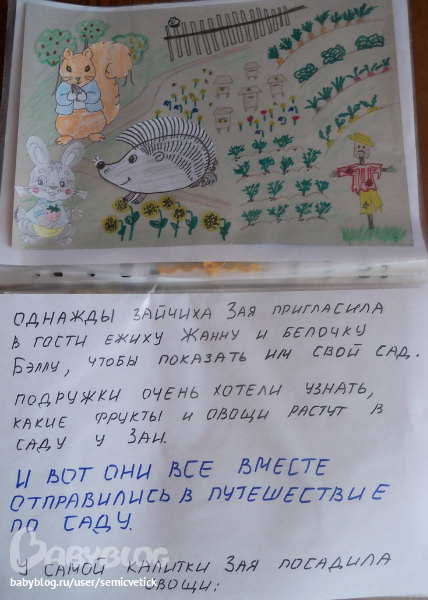 ОДНАЖДЫ ЗАЙЧИХА ЗАЯ ПРИГЛАСИЛА
В ГОСТИ ЕЖИХУ ЖАННУ И БЕЛОЧКУ
БЭЛЛУ, ЧТОБЫ ПОКАЗАТЬ ИМ СВОЙ САД.
ПОДРУЖКИ ОЧЕНЬ ХОТЕЛИ УЗНАТЬ,
КАКИЕ ФРУКТЫ И ОВОЩИ РАСТУТ В
САДУ У ЗАИ.
И ВОТ ОНИ ВСЕ ВМЕСТЕ
ОТПРАВИЛИСЬ В ПУТЕШЕСТВИЕ
ПО САДУ.
BABYBLOG
babyblog.ru/user/semicvetick
У САМОЙ КАЛИТКИ ЗАЯ ПОСАДИЛА
ОВОЩИ: